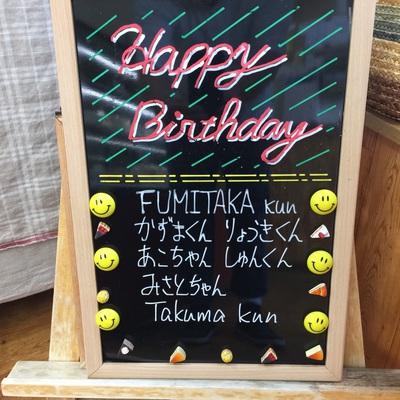 Happy
Birthday
FUMITAKA kun
かずまくん りょうきくん
あこちゃん しゅんくん
みさとちゃん
Takuma kun